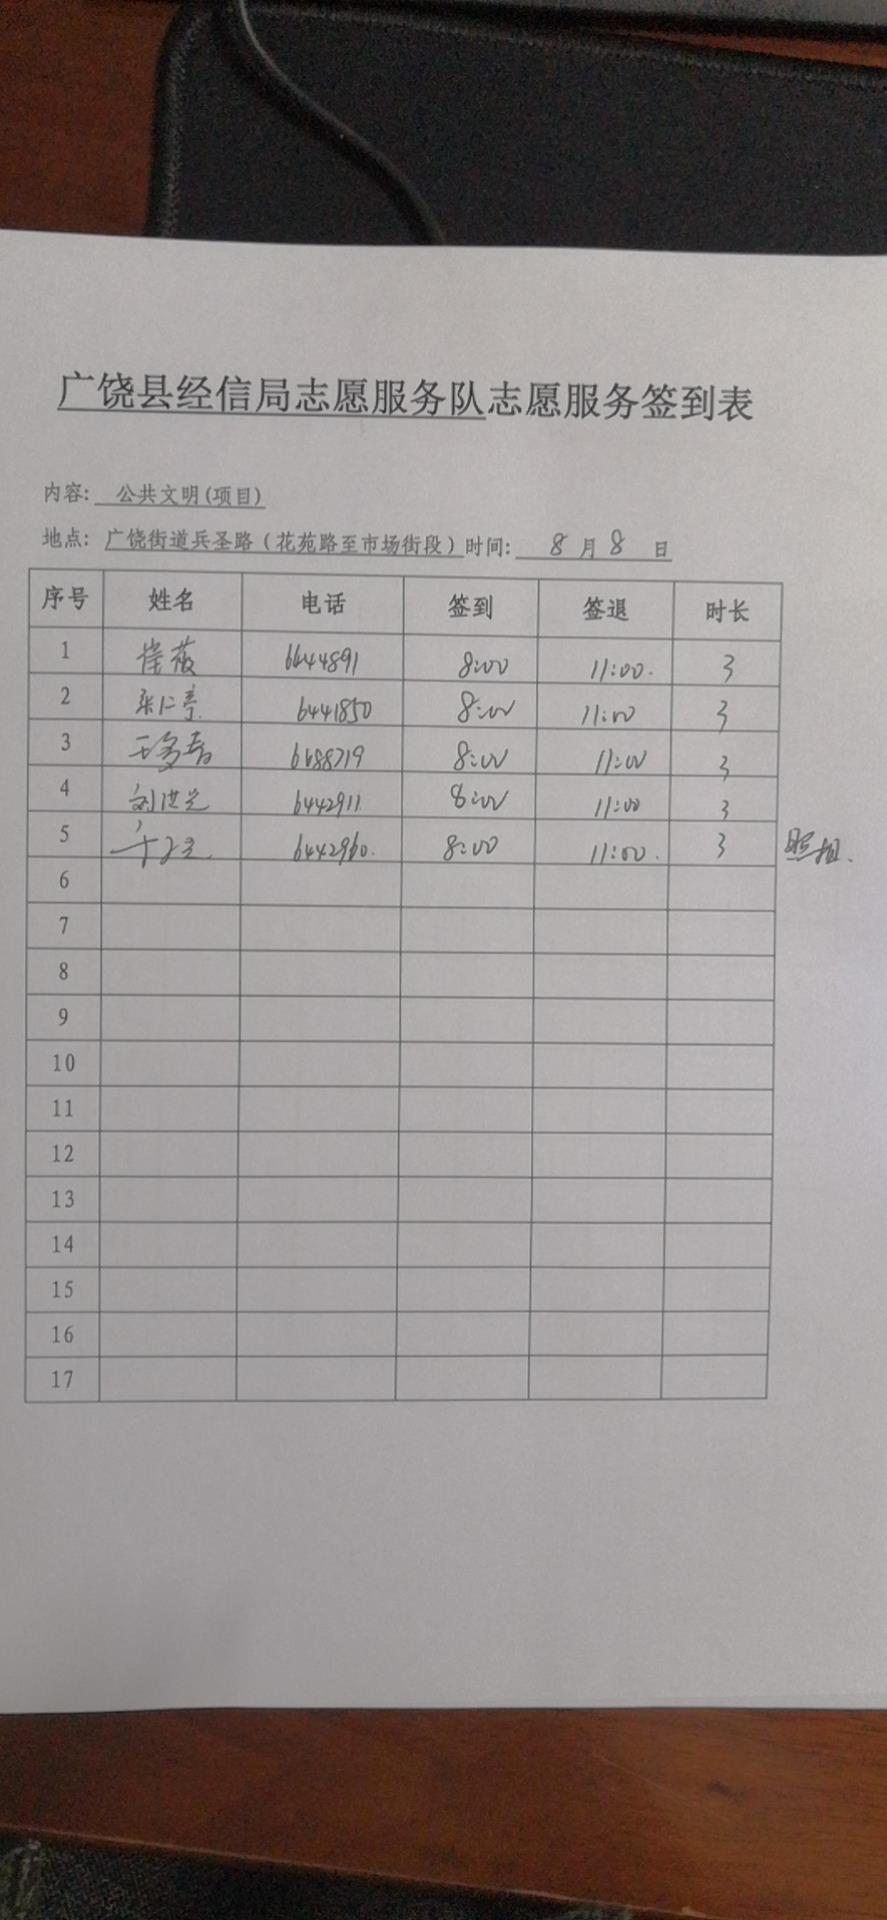 广饶县经信局志愿服务队志愿服务签到表
内容: 公共文明(项目)
地点: 广饶街道兵圣路（花苑路至市场街段）时间: 8 月 8 日
序号 姓名 电话 签到 签退 时长
1 崔薇 6644891 8:00 11:00. 3
2 6441850 8:00 11:00 3
3 6688719 8:00 11:00 3
4 刘洪光 6442911 8:00 11:00 3
5 6442960. 8:00 11:00. 3 照相.
6
7
8
9
10
11
12
13
14
15
16
17